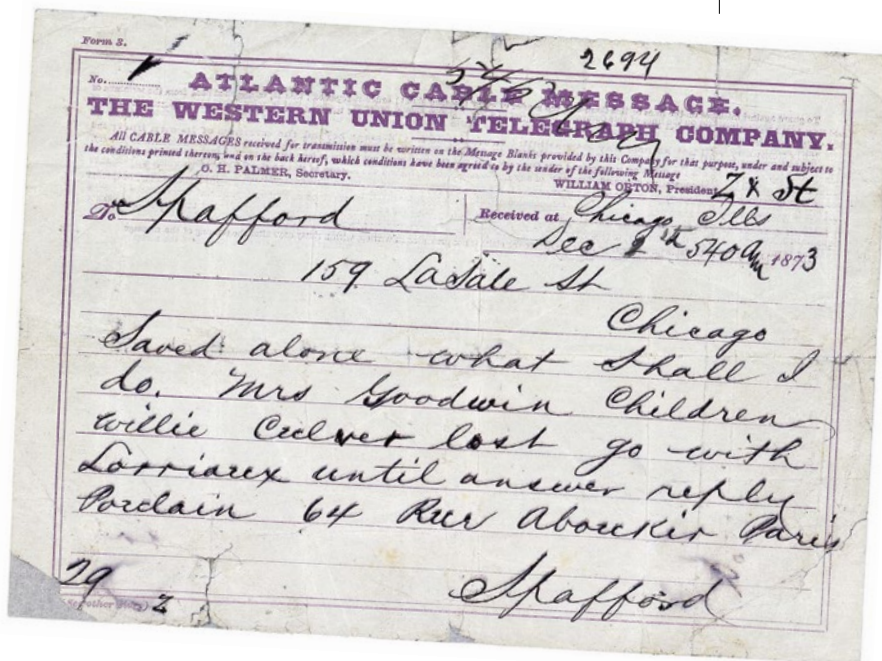 Form 3.
2694
No.
ATLANTIC CABLE MESSAGE.
THE WESTERN UNION TELEGRAPH COMPANY.
All CABLE MESSAGES received for transmission must be written on the Message Blanks provided by this Company for that purpose, under and subject to
the conditions printed thereon, and on the back hereof, which conditions have been agreed to by the sender of the following Message
O. H. PALMER, Secretary.
WILLIAM ORTON, President
To Spafford
Received at Chicago Ills
Dec 540 am 1873
159 LaSale St
Chicago
Saved alone what shall I
do. Mrs Goodwin Children
Willie Culver lost go with
Lorriaux until answer reply
Porclain 64 Rue Aboukir Paris
Spafford
29
2